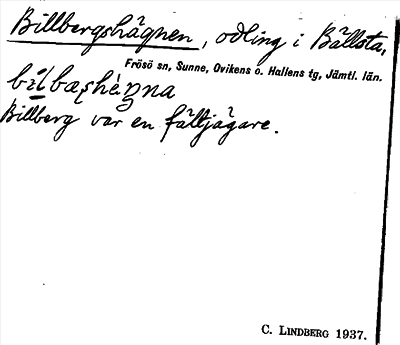 Billbergshägnen, odling i Bällsta,
Frösö sn, Sunne, Ovikens o. Hallens tg, Jämtl. län.
Billberg var en fältjägare.
C. LINDBERG 1937.